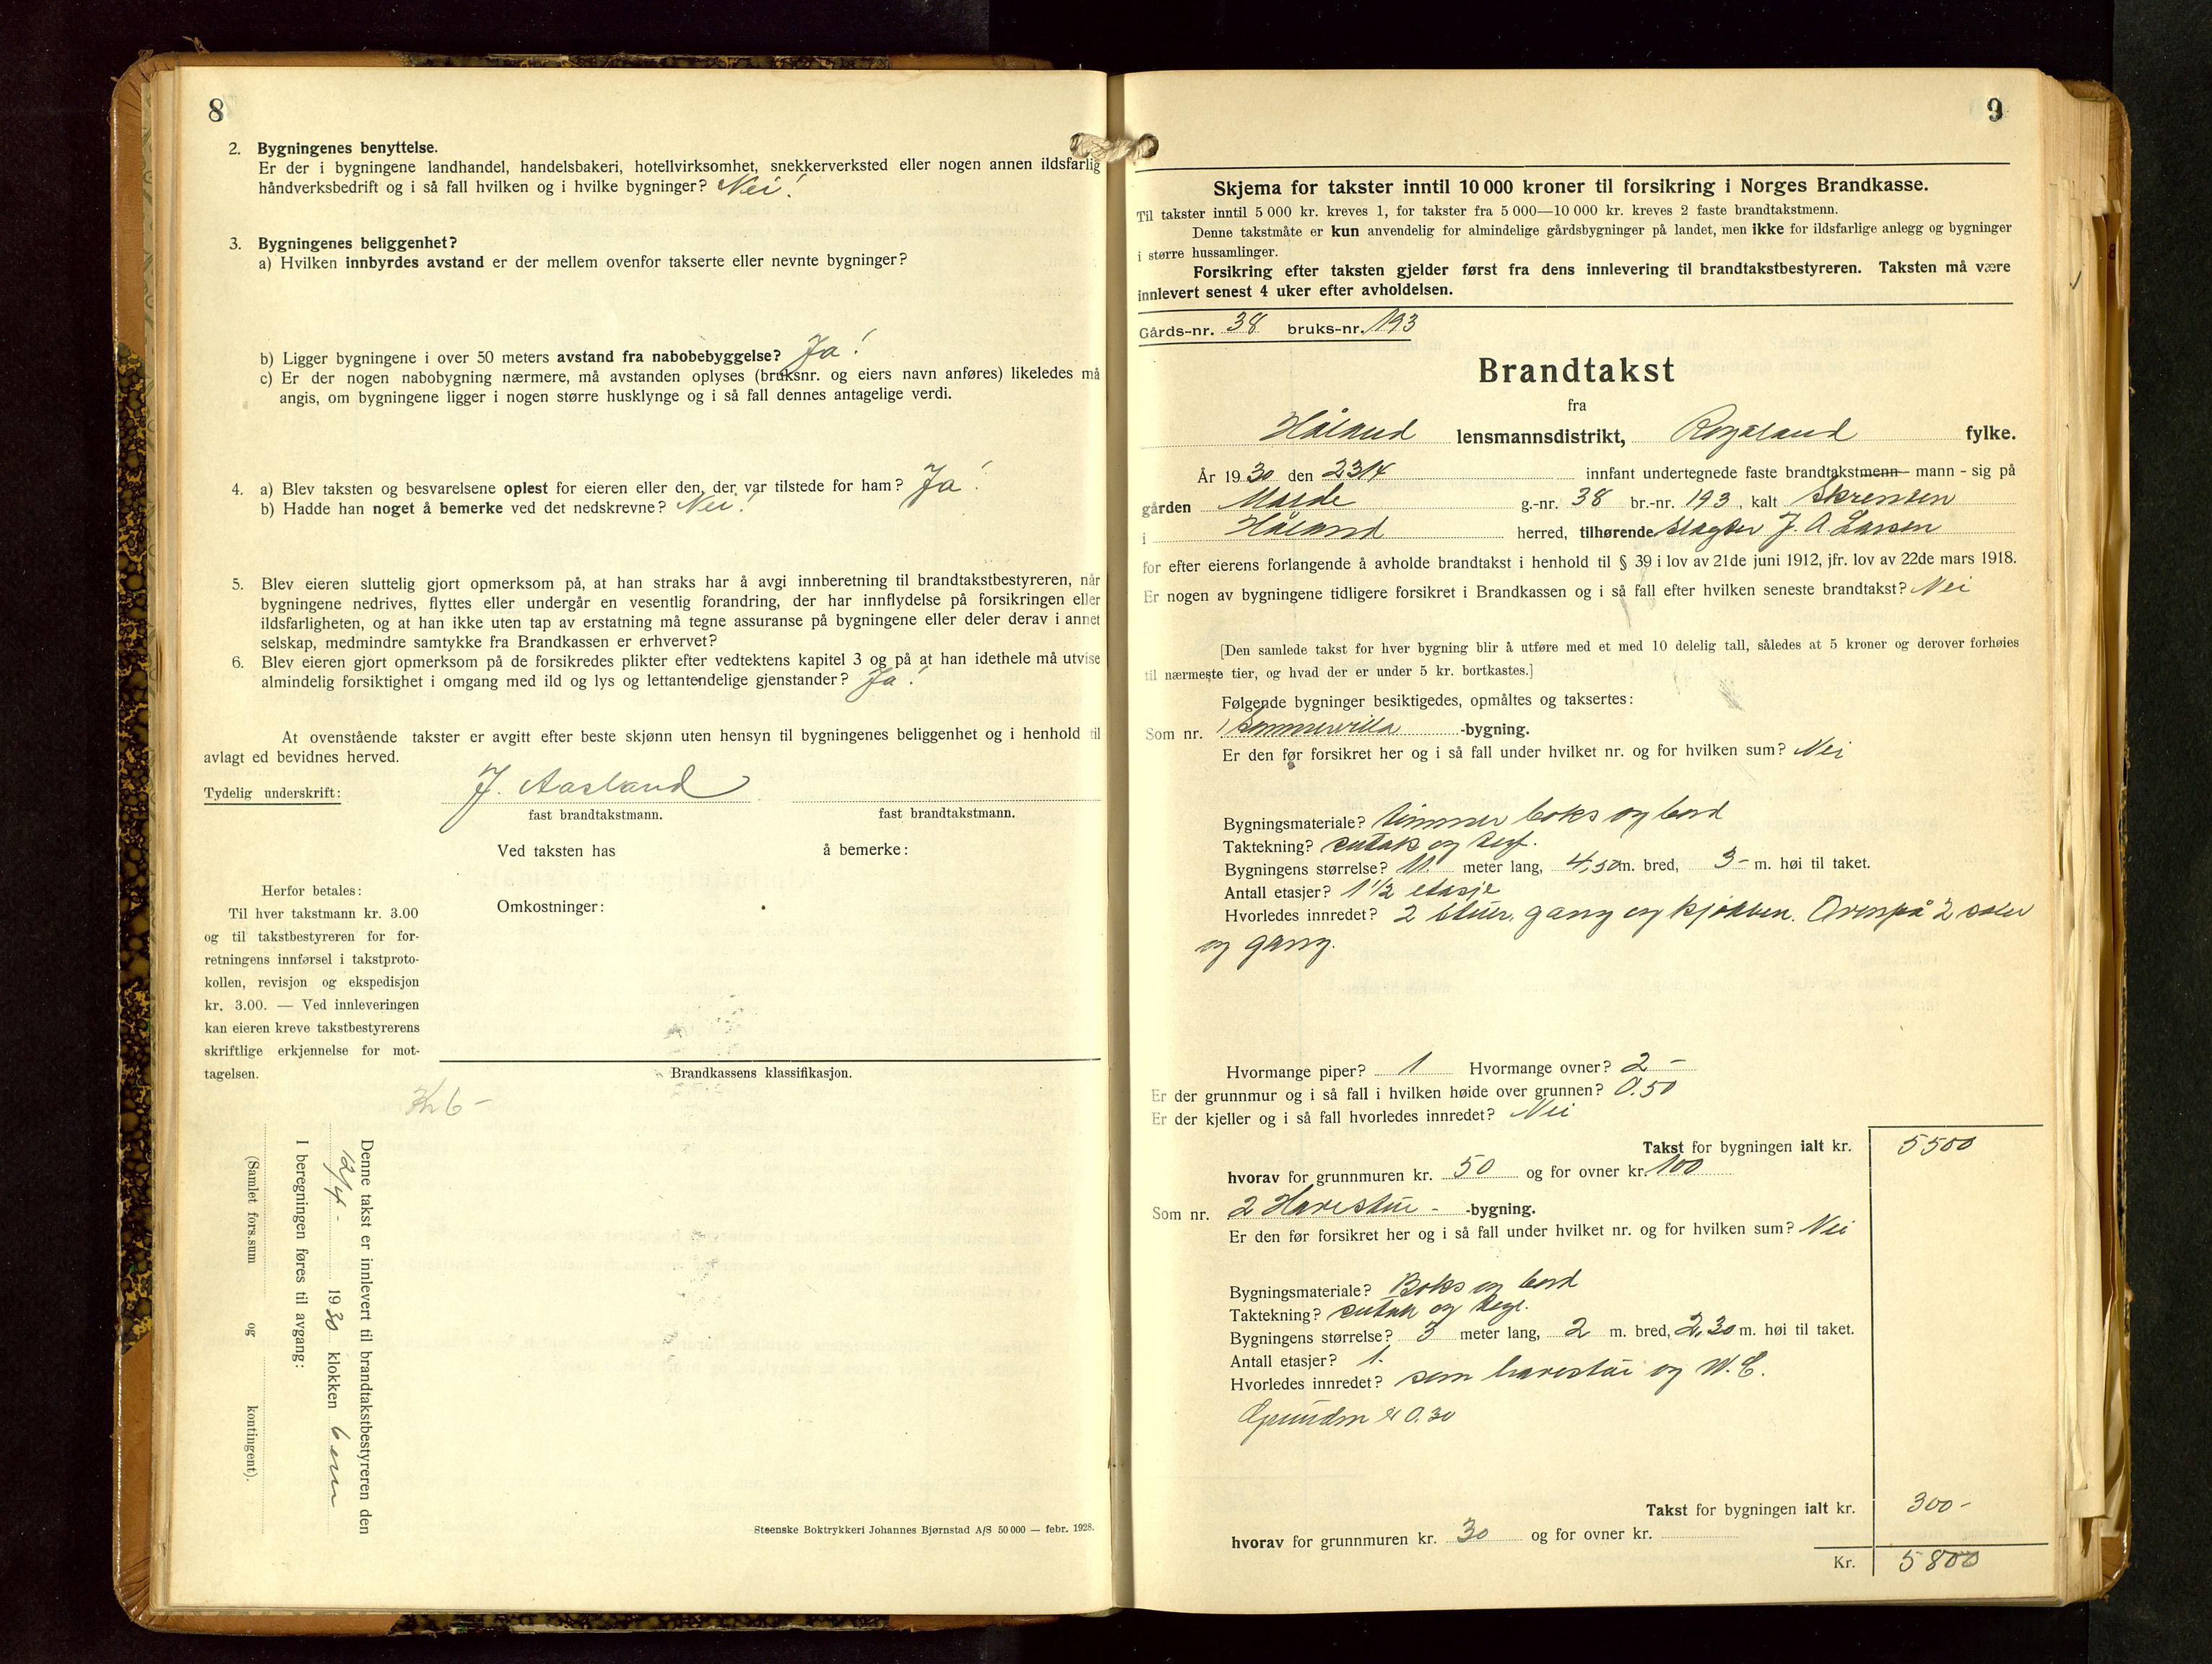 8
2. Bygningenes benyttelse.
Er der i bygningene landhandel, handelsbakeri, hotellvirksomhet, snekkerverksted eller nogen annen ildsfarlig
håndverksbedrift og i så fall hvilken og i hvilke bygninger? Nei!
3. Bygningenes beliggenhet?
a) Hvilken innbyrdes avstand er der mellem ovenfor takserte eller nevnte bygninger?
b) Ligger bygningene i over 50 meters avstand fra nabobebyggelse? Ja!
c) Er der nogen nabobygning nærmere, må avstanden oplyses (bruksnr. og eiers navn anføres) likeledes må
angis, om bygningene ligger i nogen større husklynge og i så fall dennes antagelige verdi.
4. a) Blev taksten og besvarelsene oplest for eieren eller den, der var tilstede for ham? Ja!
b) Hadde han noget å bemerke ved det nedskrevne? Nei!
5. Blev eieren sluttelig gjort opmerksom på, at han straks har å avgi innberetning til brandtakstbestyreren, når
bygningene nedrives, flyttes eller undergår en vesentlig forandring, der har innflydelse på forsikringen eller
ildsfarligheten, og at han ikke uten tap av erstatning må tegne assuranse på bygningene eller deler derav i annet
selskap, medmindre samtykke fra Brandkassen er erhvervet?
6. Blev eieren gjort opmerksom på de forsikredes plikter efter vedtektens kapitel 3 og på at han idethele må utvise
almindelig forsiktighet i omgang med ild og lys og lettantendelige gjenstander? Ja!
At ovenstående takster er avgitt efter beste skjønn uten hensyn til bygningenes beliggenhet og i henhold til
avlagt ed bevidnes herved.
Tydelig underskrift: J. Aasland
fast brandtakstmann. fast brandtakstmann.
Ved taksten has å bemerke:
Omkostninger:
Herfor betales:
Til hver takstmann kr. 3.00
og til takstbestyreren for for-
retningens innførsel i takstproto-
kollen, revisjon og ekspedisjon
kr. 3.00. — Ved innleveringen
kan eieren kreve takstbestyrerens
skriftlige erkjennelse for mot-
tagelsen.
Brandkassens klassifikasjon.
Kr 6 -
Denne takst er innlevert til brandtakstbestyreren den
12/4 - 1930 klokken 6 em
I beregningen føres til avgang:
(Samlet fors.sum og kontingent).
Steenske Boktrykkeri Johannes Bjørnstad A/S 50 000 — febr. 1928.
9
Skjema for takster inntil 10 000 kroner til forsikring i Norges Brandkasse.
Til takster inntil 5 000 kr. kreves 1, for takster fra 5 000—10 000 kr. kreves 2 faste brandtakstmenn.
Denne takstmåte er kun anvendelig for almindelige gårdsbygninger på landet, men ikke for ildsfarlige anlegg og bygninger
i større hussamlinger.
Forsikring efter taksten gjelder først fra dens innlevering til brandtakstbestyreren. Taksten må være
innlevert senest 4 uker efter avholdelsen.
Gårds-nr. 38 bruks-nr. 193
Brandtakst
fra
Håland lensmannsdistrikt, Rogaland fylke.
År 1930 den 23/4 innfant undertegnede faste brandtakstmenn mann - sig på
gården g.-nr. 38 br.-nr. 193, kalt Skrenten
i Håland herred, tilhørende Slagter J. A. Larsen
for efter eierens forlangende å avholde brandtakst i henhold til § 39 i lov av 21de juni 1912, jfr. lov av 22de mars 1918.
Er nogen av bygningene tidligere forsikret i Brandkassen og i så fall efter hvilken seneste brandtakst? Nei
[Den samlede takst for hver bygning blir å utføre med et med 10 delelig tall, således at 5 kroner og derover forhøies
til nærmeste tier, og hvad der er under 5 kr. bortkastes.]
Følgende bygninger besiktigedes, opmåltes og taksertes:
Som nr. 1 Sommervilla -bygning.
Er den før forsikret her og i så fall under hvilket nr. og for hvilken sum? Nei
Bygningsmateriale? timmer boks og bord
Taktekning? sutak og tegl.
Bygningens størrelse? 11. meter lang, 4,50 m. bred, 3- m. høi til taket.
Antall etasjer? 1 1/2 etasje
Hvorledes innredet? 2 stuer, gang og kjøkken. Ovenpå 2 saler
og gang.
Hvormange piper? 1 Hvormange ovner? 2 -
Er der grunnmur og i så fall i hvilken høide over grunnen? 0.50
Er der kjeller og i så fall hvorledes innredet? Nei
Takst for bygningen ialt kr. 5500
hvorav for grunnmuren kr. 50 og for ovner kr. 100
Som nr. 2 Havestue - -bygning.
Er den før forsikret her og i så fall under hvilket nr. og for hvilken sum? Nei
Bygningsmateriale? Boks og bord
Taktekning? sutak og tegl.
Bygningens størrelse? 3 meter lang, 2 m. bred, 2,30 m. høi til taket.
Antall etasjer? 1.
Hvorledes innredet? som havestue og W.C.
Grundm er 0.30
Takst for bygningen ialt kr. 300-
hvorav for grunnmuren kr. 30 og for ovner kr.
Kr. 5800